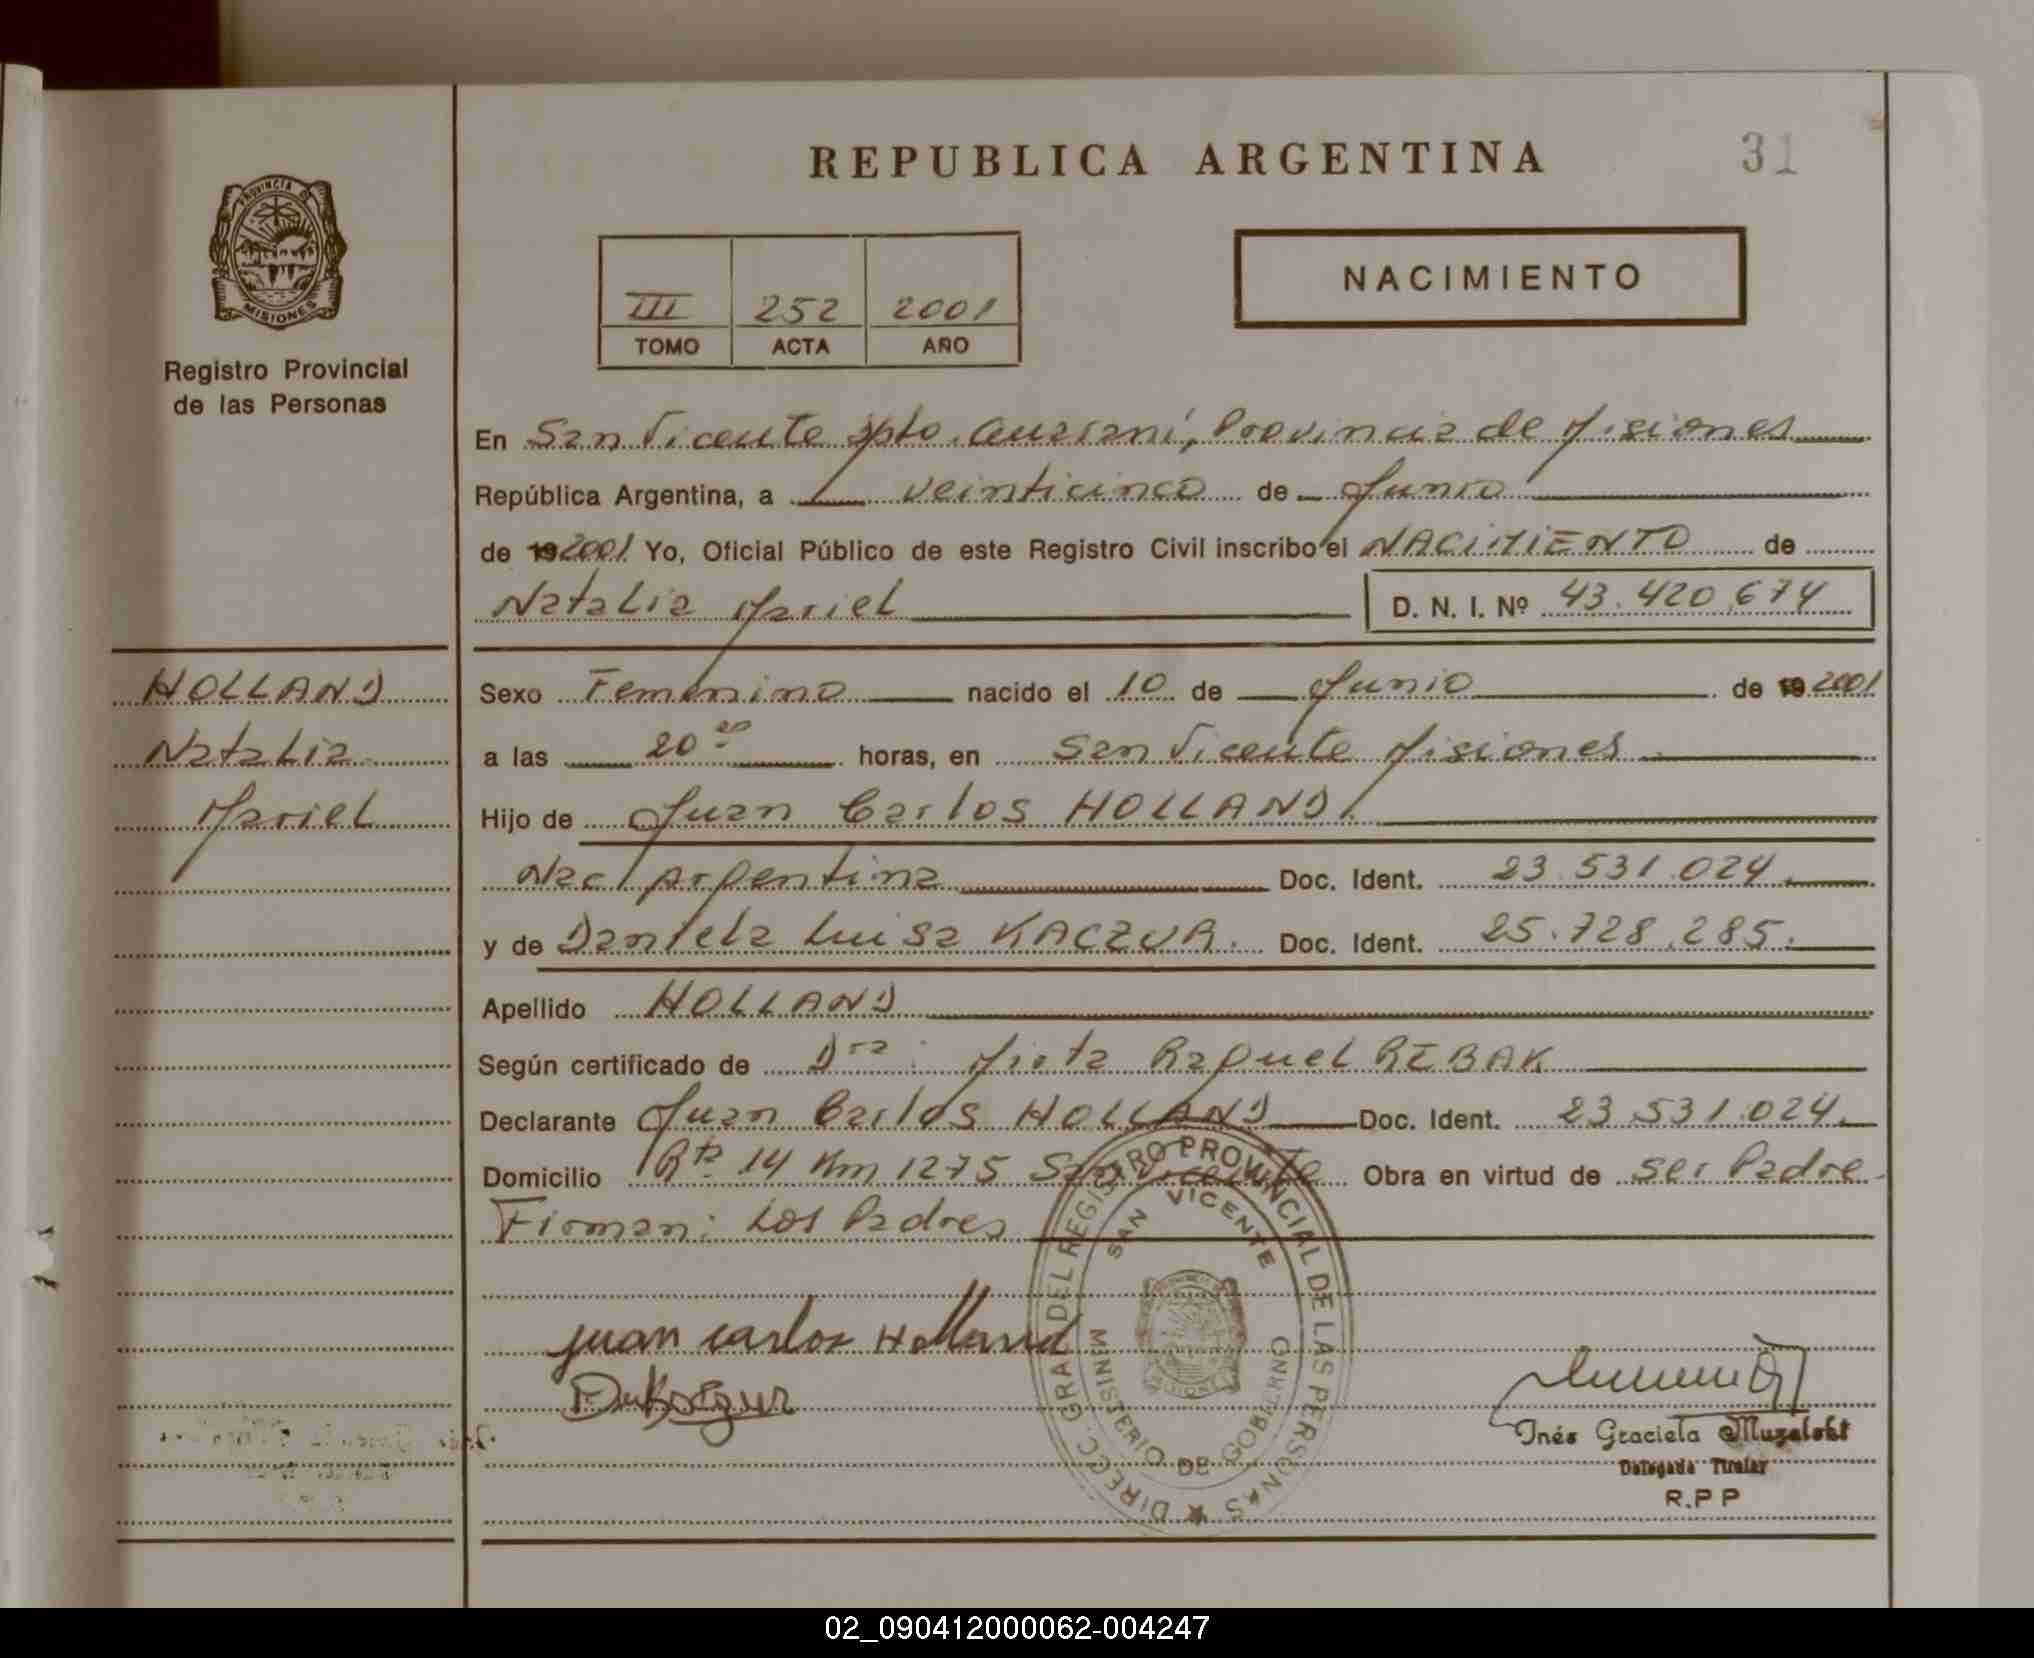 REPUBLICA ARGENTINA
31
PROVINCIA DE
MISIONES
Registro Provincial
de las Personas
III 252 2001
TOMO ACTA AÑO
NACIMIENTO
En San Vicente Dpto. Guaraní, Provincia de Misiones
República Argentina, a veinticinco de Junio
de 19 2001 Yo, Oficial Público de este Registro Civil inscribo el NACIMIENTO de
Natalia Mariel
D. N. I. Nº 43.420.674
HOLLAND
Natalia
Mariel
Sexo Femenino nacido el 10 de Junio de 19 2001
a las 20 horas, en San Vicente Misiones
Hijo de Juan Carlos HOLLAND.
Nac Argentina Doc. Ident. 23.531.024.
y de Daniela Luisa KACZUR. Doc. Ident. 25.728.285.
Apellido HOLLAND
Según certificado de Dra: Mirta Raquel REBAK
Declarante Juan Carlos HOLLAND Doc. Ident. 23.531.024.
Domicilio Rta 14 Km 1275 San Vicente Obra en virtud de ser Padre
Firman: Los Padres
DIRECC. GRAL DEL REGISTRO PROVINCIAL DE LAS PERSONAS
SAN VICENTE
MINISTERIO DE GOBIERNO
MISIONES
Juan Carlos Holland
Inés Graciela Muzalski
Delegada Titular
R.P P
02_090412000062-004247